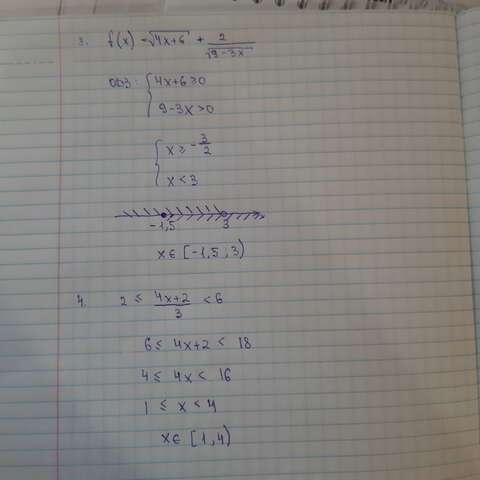 3. f(x) = √4x+6 + 2/√9-3x
ОДЗ: { 4x+6 ≥ 0
9-3x > 0
{ x ≥ -3/2
x < 3
-1,5 3
x ∈ [-1,5 ; 3)
4. 2 ≤ 4x+2/3 < 6
6 ≤ 4x+2 < 18
4 ≤ 4x < 16
1 ≤ x < 4
x ∈ [1, 4)